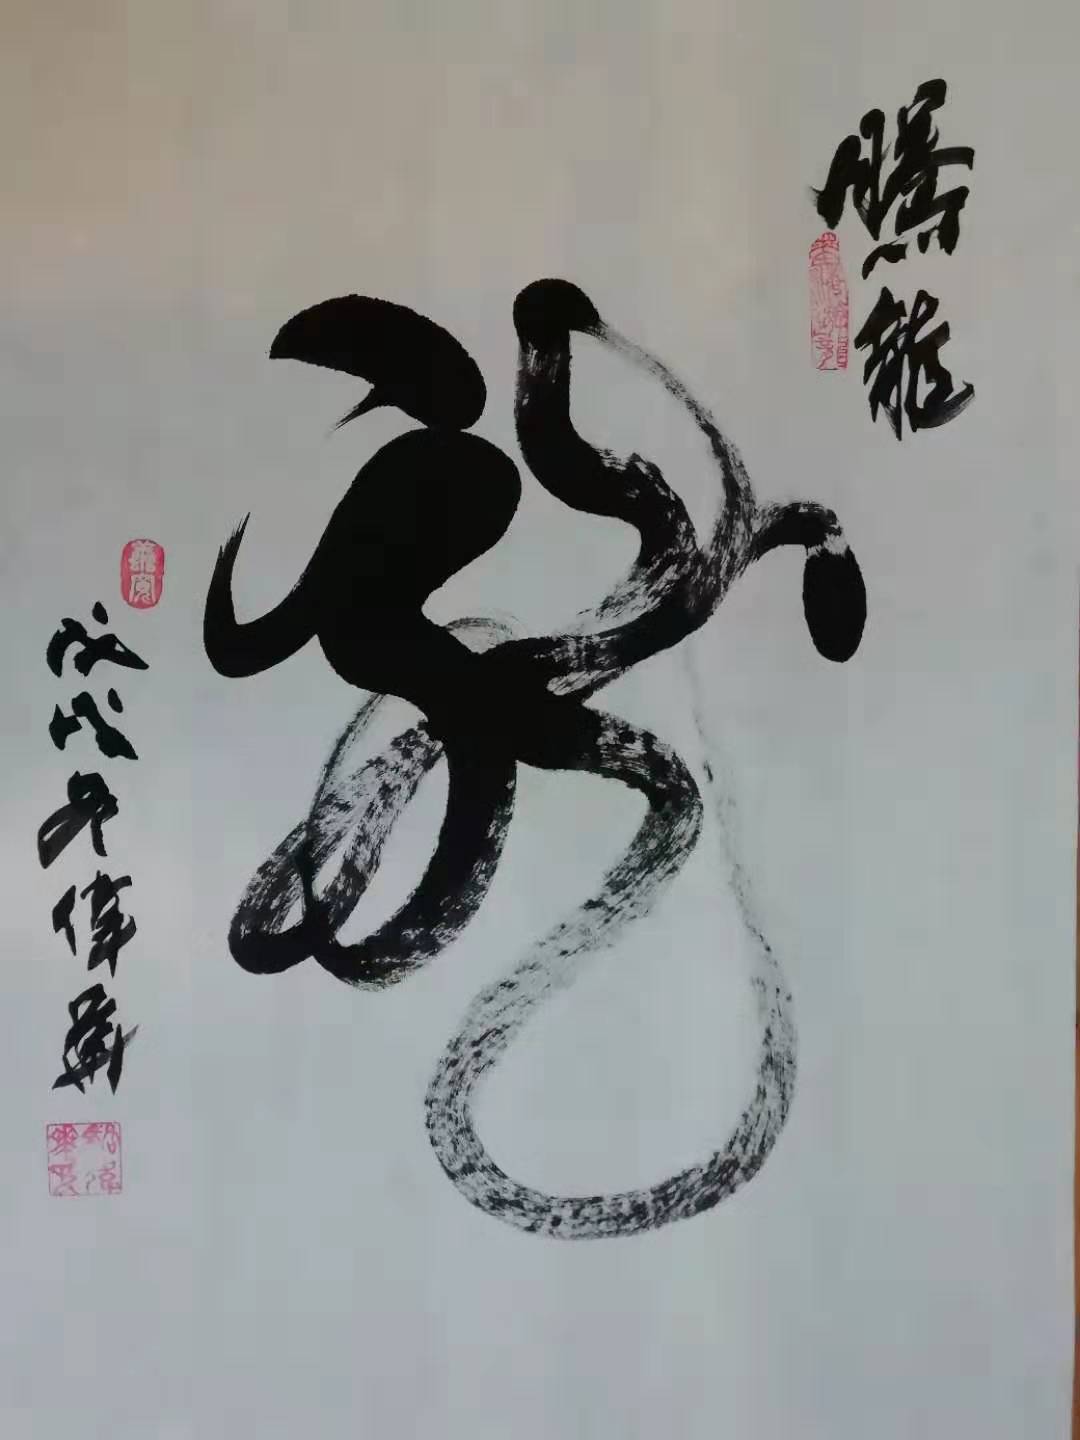 騰龍
龍
戊戌年偉華